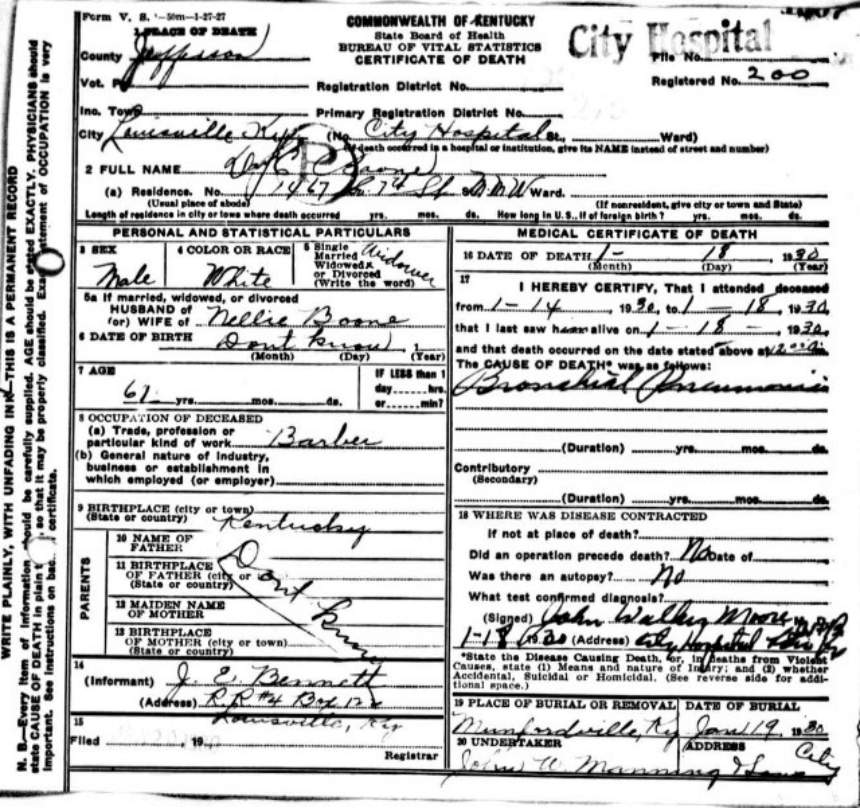 Form V. S. 1-50m-1-27-27
COMMONWEALTH OF KENTUCKY
State Board of Health
BUREAU OF VITAL STATISTICS
CERTIFICATE OF DEATH
City Hospital
1 PLACE OF DEATH
County Jefferson
File No.
Vot. P
Registration District No.
Registered No. 200
Inc. Town
Primary Registration District No.
City Louisville Ky. (No. City Hospital St., Ward)
(If death occurred in a hospital or institution, give its NAME instead of street and number)
2 FULL NAME C Boone
(a) Residence. No. 1467 So. 7th St. Ward.
(Usual place of abode) (If nonresident, give city or town and State)
Length of residence in city or town where death occurred yrs. mos. ds. How long in U.S., if of foreign birth? yrs. mos. ds.
PERSONAL AND STATISTICAL PARTICULARS
3 SEX Male
4 COLOR OR RACE White
5 Single Married Widowed or Divorced (Write the word) Widower
5a If married, widowed, or divorced
HUSBAND of
(or) WIFE of Nellie Boone
6 DATE OF BIRTH Dont know, 1
(Month) (Day) (Year)
7 AGE
61 yrs. mos. ds.
IF LESS than 1
day hrs.
or min?
8 OCCUPATION OF DECEASED
(a) Trade, profession or
particular kind of work Barber
(b) General nature of industry,
business or establishment in
which employed (or employer)
9 BIRTHPLACE (city or town)
(State or country) Kentucky
PARENTS
10 NAME OF
FATHER
11 BIRTHPLACE
OF FATHER (city or
(State or country)
12 MAIDEN NAME
OF MOTHER
13 BIRTHPLACE
OF MOTHER (city or town)
(State or country)
Dont know
14
(Informant) J. E. Bennett
(Address) R.R #4 Box
Louisville, Ky
15
Filed , 19
Registrar
MEDICAL CERTIFICATE OF DEATH
16 DATE OF DEATH 1- 18, 1930
(Month) (Day) (Year)
17
I HEREBY CERTIFY, That I attended deceased
from 1-14, 1930, to 1-18, 1930,
that I last saw h alive on 1-18-, 1930,
and that death occurred on the date stated above at m.
The CAUSE OF DEATH* was as follows:
Bronchial Pneumonia
(Duration) yrs. mos. ds.
Contributory
(Secondary)
(Duration) yrs. mos. ds.
18 WHERE WAS DISEASE CONTRACTED
If not at place of death?
Did an operation precede death? No Date of
Was there an autopsy? No
What test confirmed diagnosis?
(Signed) John Walker Moore
1-18, 1930 (Address) City Hospital
*State the Disease Causing Death, or, in deaths from Violent
Causes, state (1) Means and nature of Injury; and (2) whether
Accidental, Suicidal or Homicidal. (See reverse side for addi-
tional space.)
19 PLACE OF BURIAL OR REMOVAL DATE OF BURIAL
Munfordville, Ky Jan 19, 1930
20 UNDERTAKER ADDRESS
John W. Manning & Sons City
WRITE PLAINLY, WITH UNFADING INK—THIS IS A PERMANENT RECORD
N. B.—Every item of information should be carefully supplied. AGE should be stated EXACTLY. PHYSICIANS should
state CAUSE OF DEATH in plain t so that it may be properly classified. Exa tement of OCCUPATION is very
important. See instructions on bac certificate.